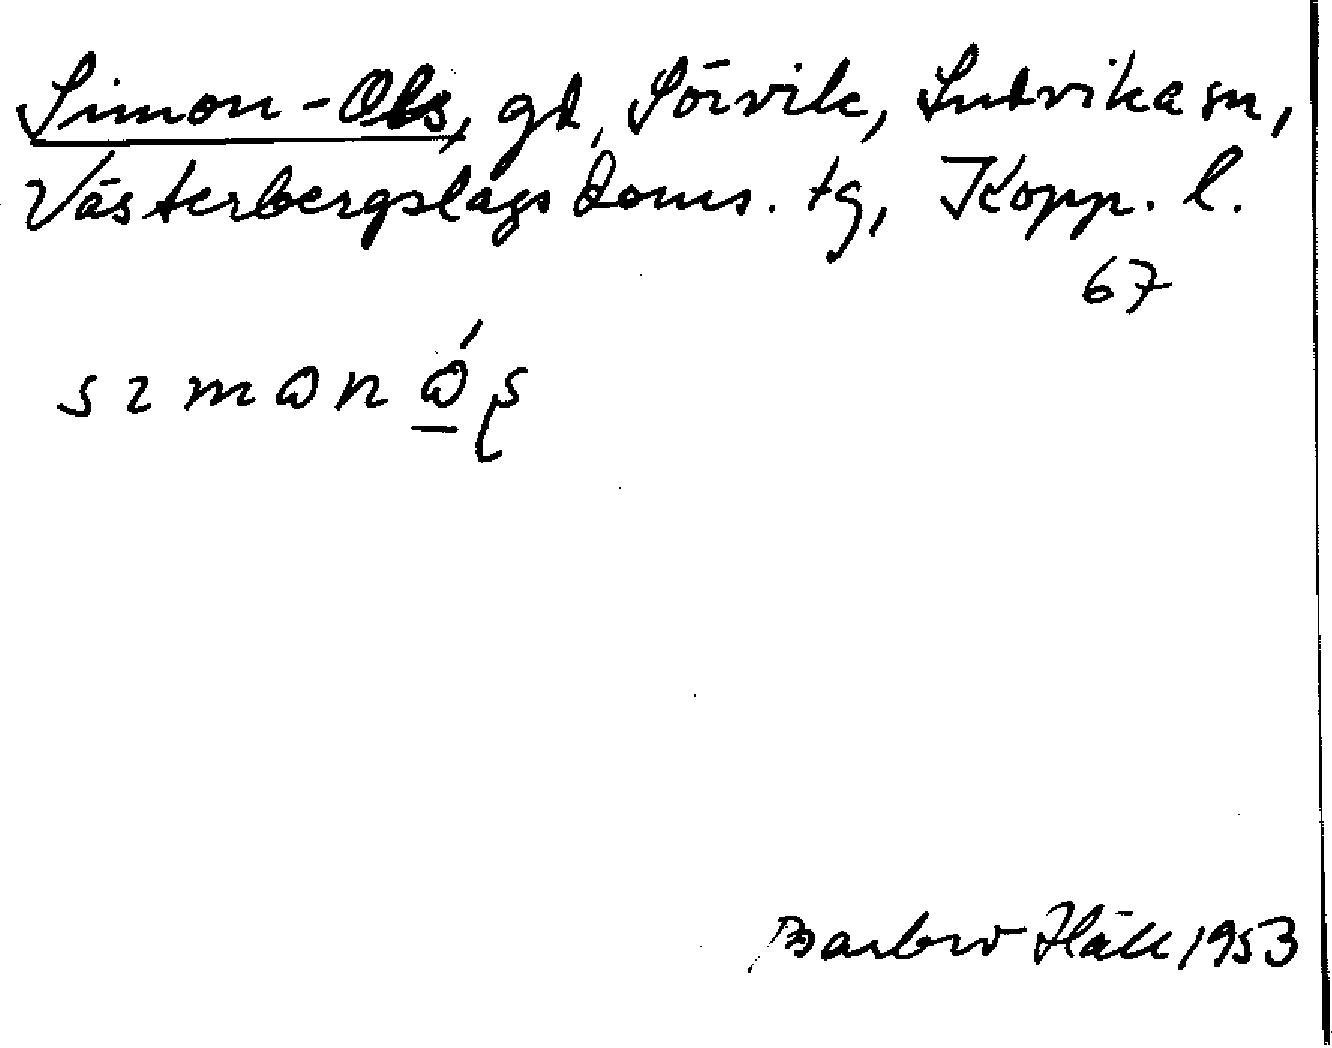 Simon-Ols, gd, Sörvik, Ludvika sn,
Västerbergslags doms. tg, Kopp. l.
67
Barbro Häll 1953